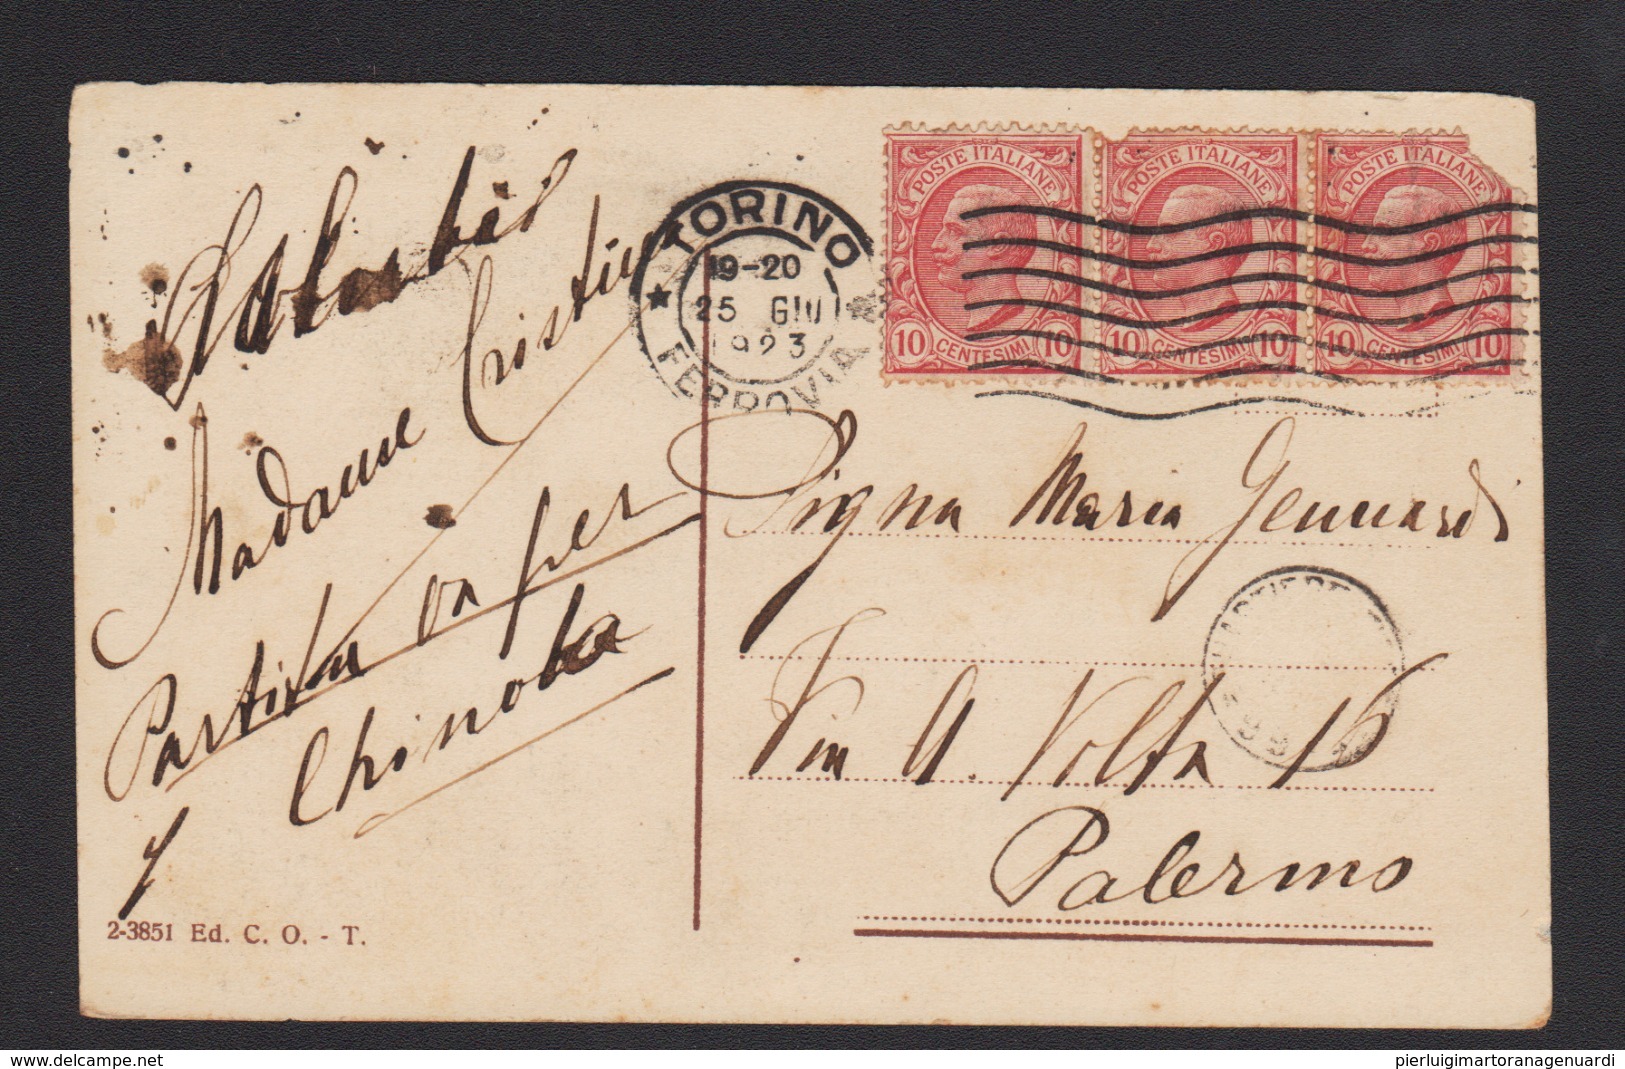 Madame Cristina
Partita ora per
2-3851 Ed. C. O. - T.
TORINO
19-20
25 GIU
1923
FERROVIA
POSTE ITALIANE POSTE ITALIANE POSTE ITALIANE
10 CENTESIMI 10 10 CENTESIMI 10 10 CENTESIMI 10
Sigra Maria Genuardi
Via A. Volta 16
Palermo
www.delcampe.net
pierluigimartoranagenuardi